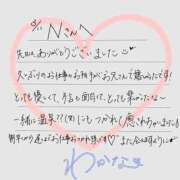 5/11 Nさんへ
先日はありがとうございました
久々のお仕事のお相手がお兄さんで良かったです!
とっても優しくて、お話も面白くて、とても楽しかったな〜
一緒に温泉??(笑)にもつかれて癒されちゃいました!
朝早から遅くまでお仕事おつかれ様です♡また会えますように
わかな